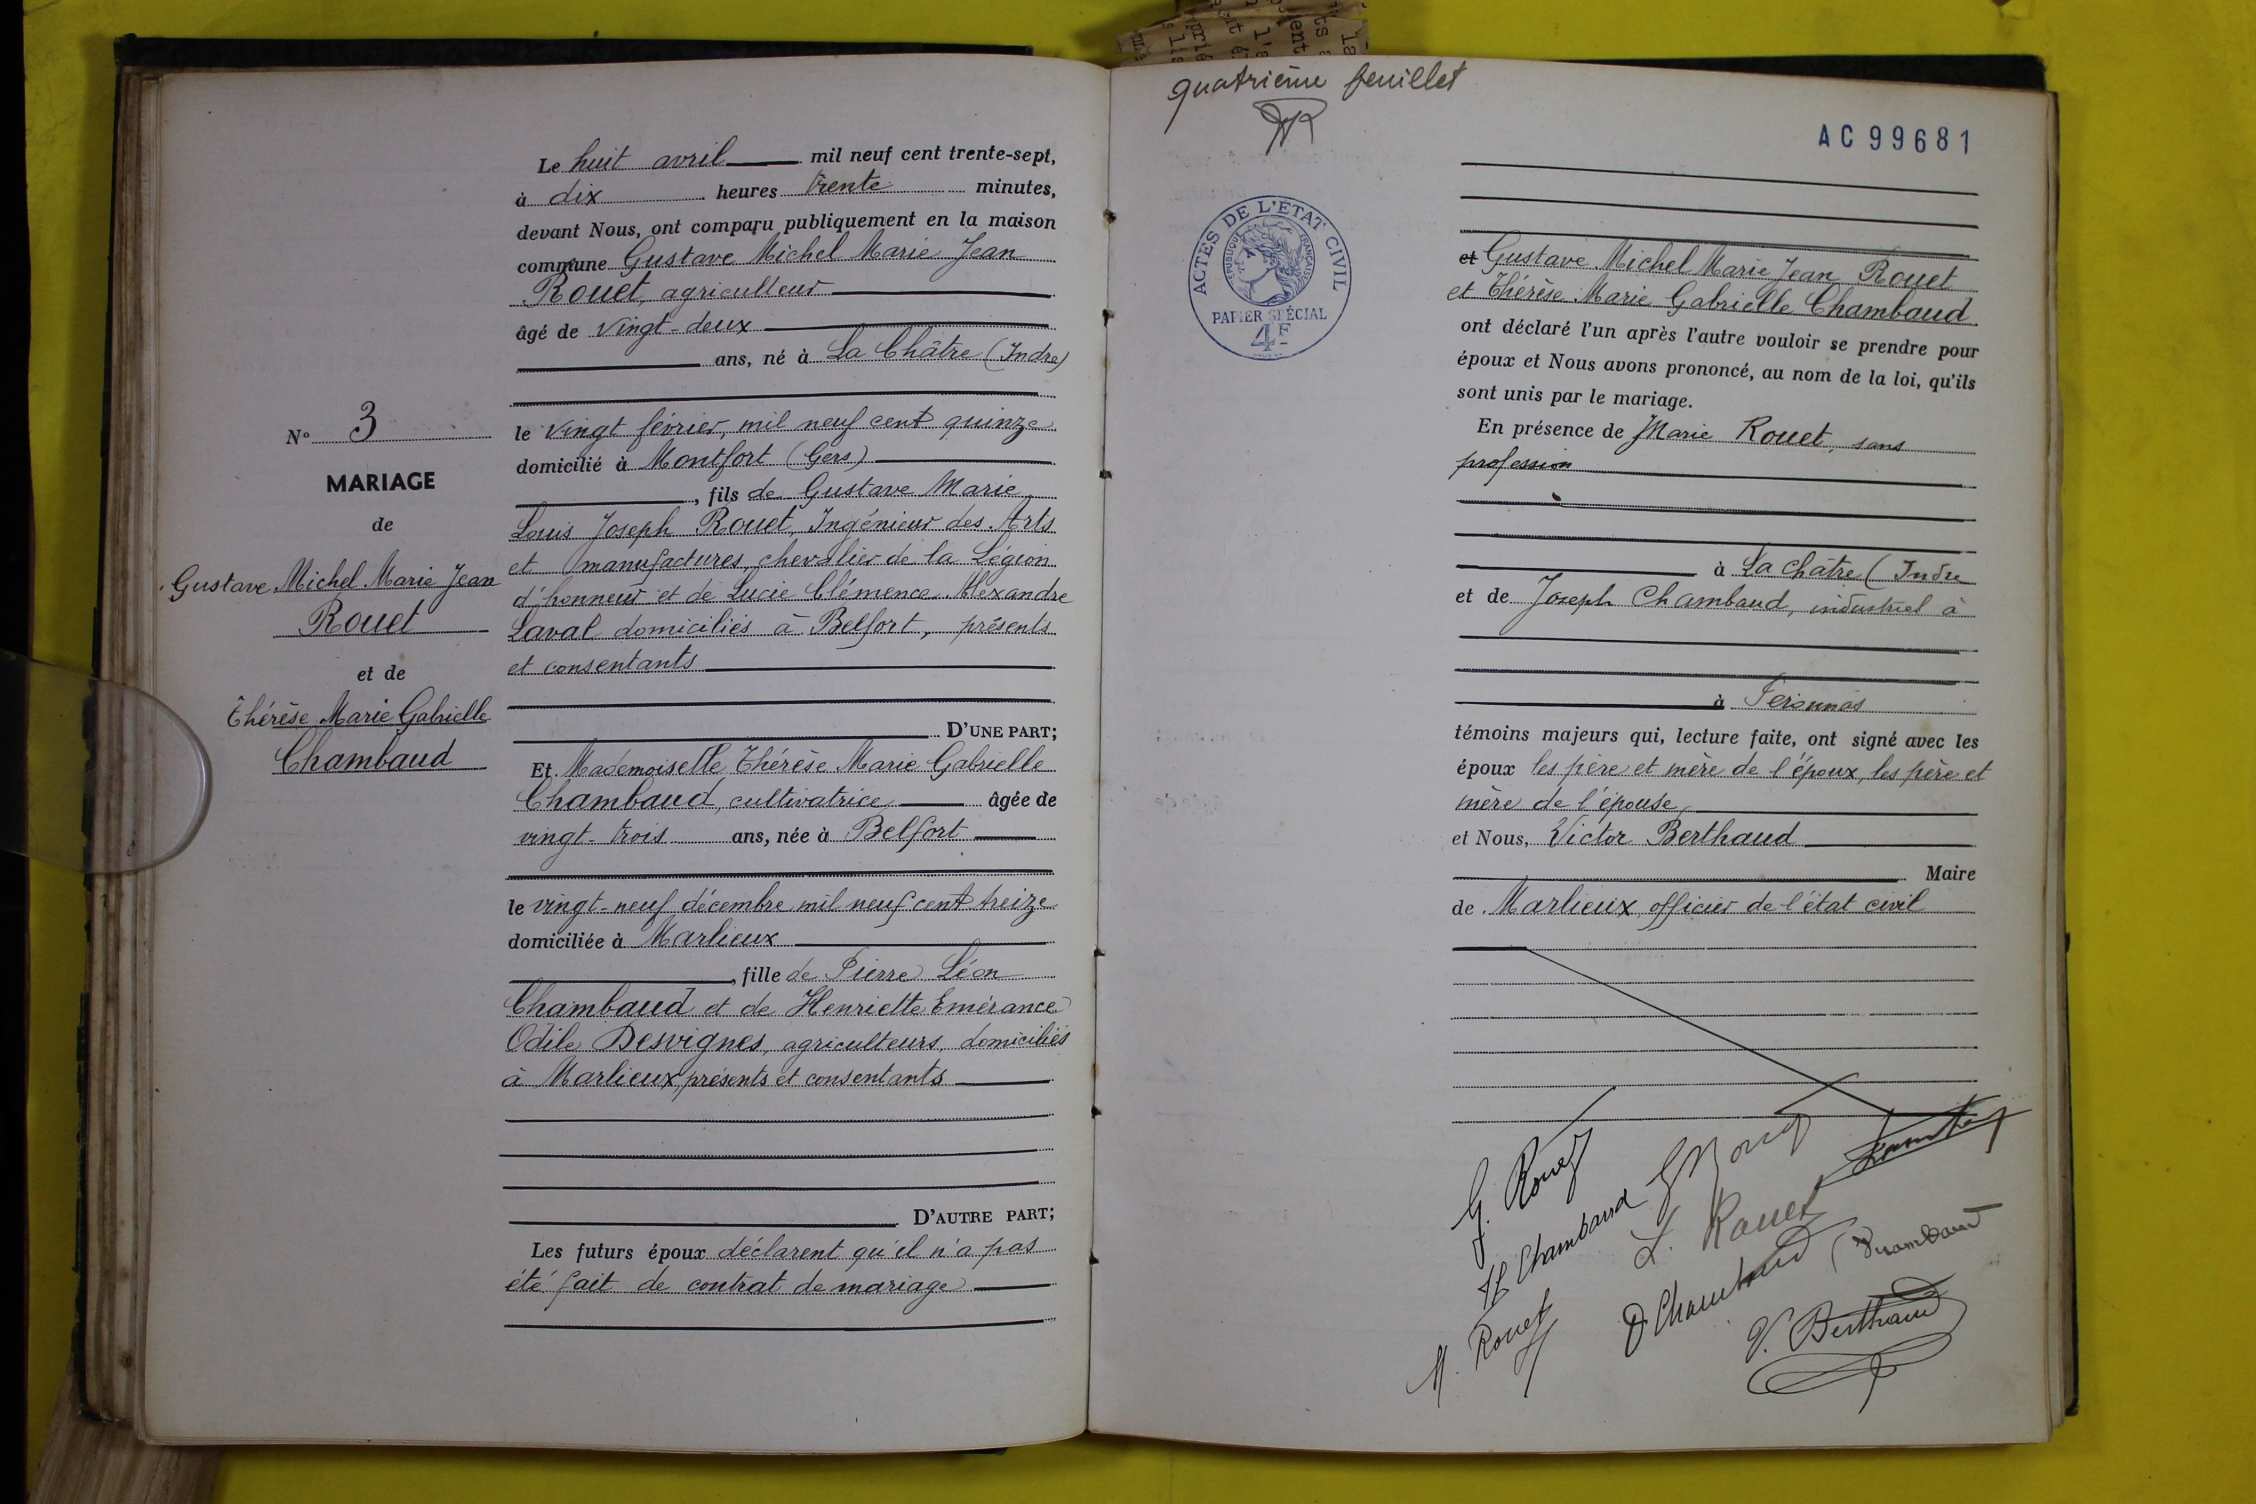 N° 3
MARIAGE
de
Gustave Michel Marie Jean
Rouet
et de
Thérèse Marie Gabrielle
Chambaud
Le huit avril mil neuf cent trente-sept,
à dix heures trente minutes,
devant Nous, ont comparu publiquement en la maison
commune Gustave Michel Marie Jean
Rouet, agriculteur
âgé de vingt-deux
ans, né à La Châtre (Indre)
le vingt février, mil neuf cent quinze
domicilié à Montfort (Gers)
, fils de Gustave Marie
Louis Joseph Rouet, Ingénieur des Arts
et manufactures, chevalier de la Légion
d'honneur et de Lucie Clémence Alexandre
Laval domiciliés à Belfort, présents
et consentants
D'UNE PART;
Et Mademoiselle Thérèse Marie Gabrielle
Chambaud, cultivatrice âgée de
vingt-trois ans, née à Belfort
le vingt-neuf décembre mil neuf cent treize
domiciliée à Marlieux
, fille de Pierre Léon
Chambaud et de Henriette Emérance
Odile Desvignes, agriculteurs, domiciliés
à Marlieux, présents et consentants
D'AUTRE PART;
Les futurs époux déclarent qu'il n'a pas
été fait de contrat de mariage
quatrième feuillet
AC 99681
ACTES DE L'ETAT CIVIL
REPUBLIQUE FRANÇAISE
PAPIER SPÉCIAL
4F
et Gustave Michel Marie Jean Rouet
et Thérèse Marie Gabrielle Chambaud
ont déclaré l'un après l'autre vouloir se prendre pour
époux et Nous avons prononcé, au nom de la loi, qu'ils
sont unis par le mariage.
En présence de Marie Rouet, sans
profession
à La Châtre (Indre
et de Joseph Chambaud, industriel à
à Péronnas
témoins majeurs qui, lecture faite, ont signé avec les
époux les père et mère de l'époux, les père et
mère de l'épouse,
et Nous, Victor Berthaud
Maire
de Marlieux officier de l'état civil
G. Rouet
H Chambaud
L. Rouet
M. Rouet
Chambaud
Chambaud
V. Berthaud